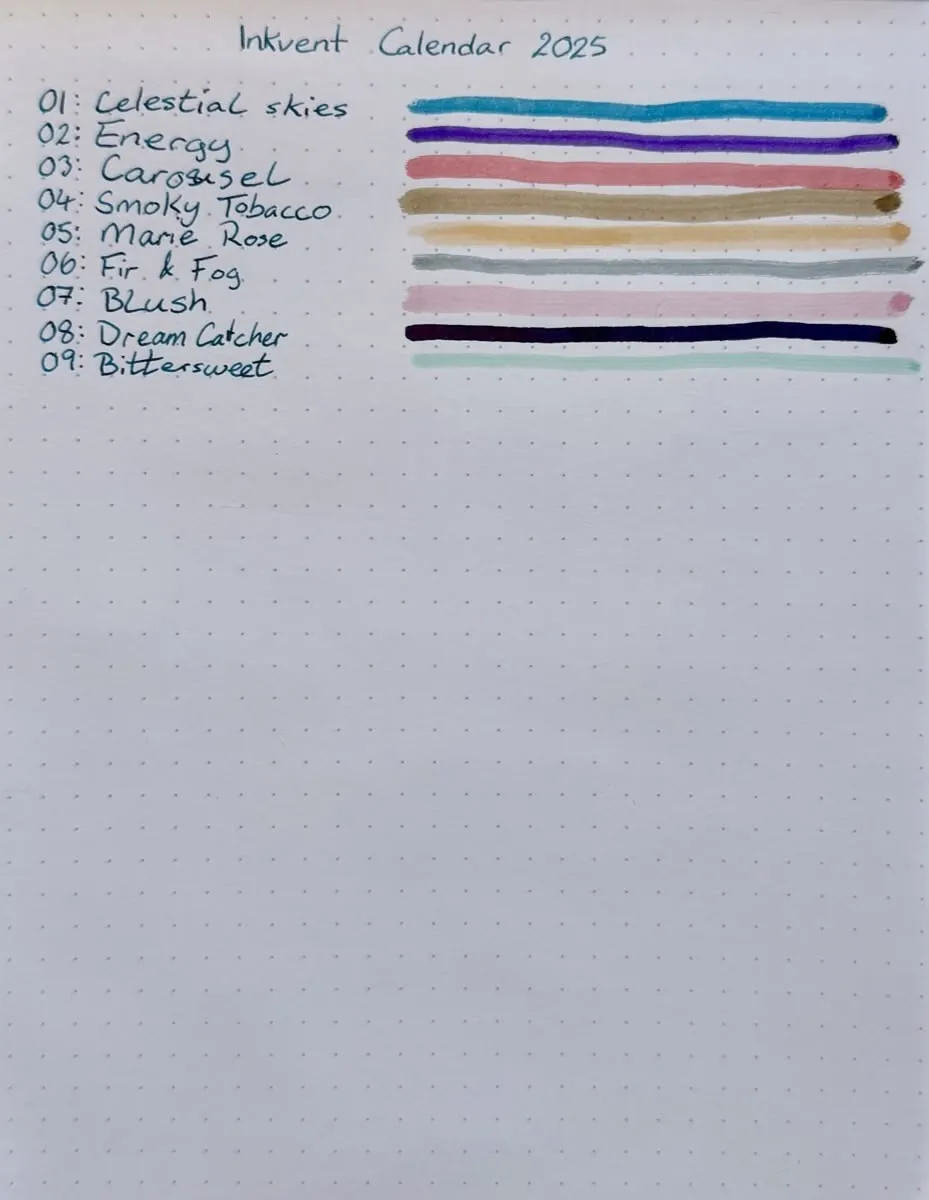 Inkvent Calendar 2025
01: Celestial skies
02: Energy
03: Carousel
04: Smoky Tobacco
05: Marie Rose
06: Fir & Fog
07: Blush
08: Dream Catcher
09: Bittersweet